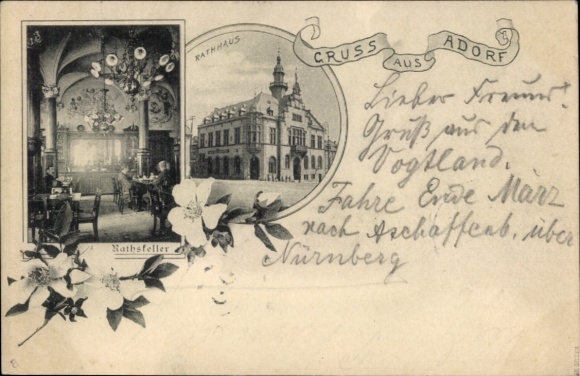 GRUSS AUS ADORF
RATHHAUS
Rathskeller
Lieber Freund!
Gruß aus dem
Vogtland.
Fahre Ende März
nach Aschaffenb. über
Nürnberg